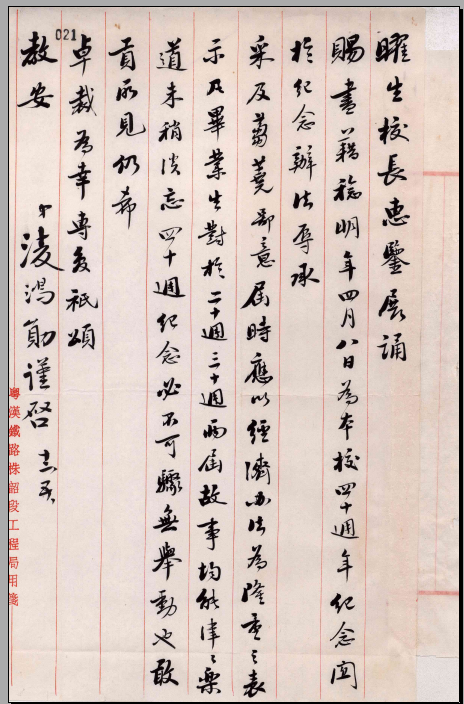 曜生校長惠鑒展誦
賜書藉稔明年四月八日為本校四十週年紀念囯
於紀念辦法辱承
采及蒭蕘鄙意屆時應以經濟办法為隆重之表
示及畢業生對於二十週三十週兩屆故事均能津之樂
道未稍淡忘四十週紀念必不可驟無舉動也敢
貢所見仍希
卓裁為幸專頌
教安
弟凌鴻勛謹啓
粵漢鐵路株韶段工程局用箋
021